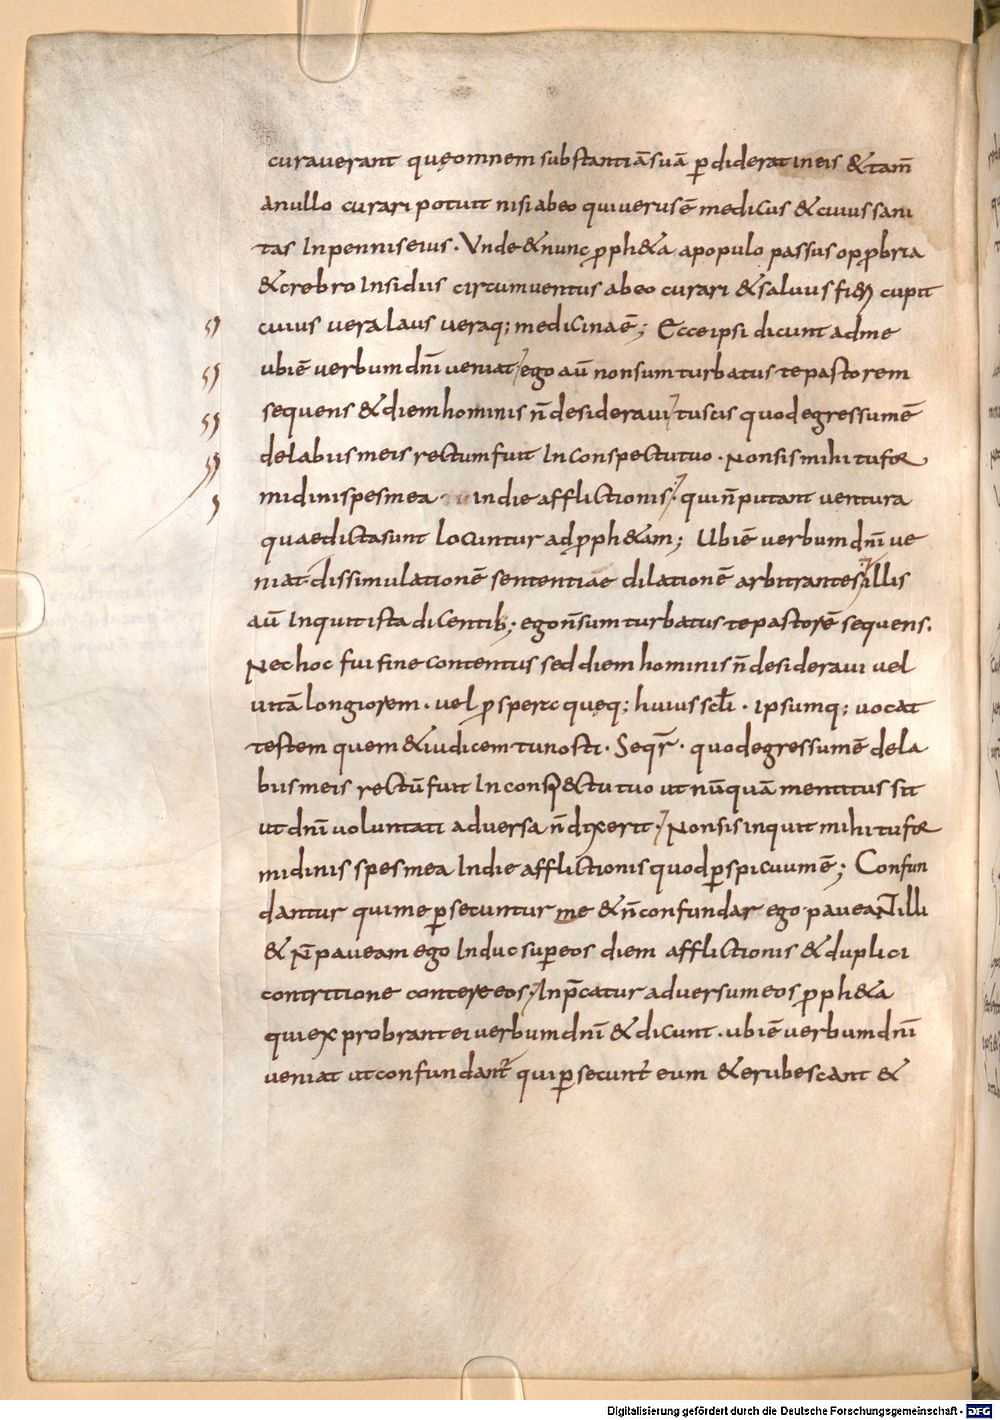 curauerant quęomnem substantiāsuā ꝑdiderat ineis & tam̄
anullo curari potuit nisi abeo qui uerus ē medicus & cuius sani
tas Inpennis eius · Vnde & nunc ꝓph&a apopulo passus opꝓbria
& crebro Insidiis circumuentus abeo curari & saluus fieri cupit
cuius uera laus ueraq; medicina ē; Ecce ipsi dicunt adme
ubi ē uerbum dn̄i ueniat / ego aū non sum turbatus te pastorem
sequens & diem hominis n̄ desideraui / tu scis quod egressum ē
delabiis meis rectum fuit Inconspectu tuo · Non sis mihi tu for
midini spes mea indie afflictionis / · qui n̄ putant uentura
quae dicta sunt locuntur ad ꝓph&am; Ubi ē uerbum dn̄i ue
niat · dissimulationē sententiae dilationē arbitrantes / illis
aū Inquit ista dicentib; · ego n̄ sum turbatus te pastorē sequens .
Nec hoc fui fine contentus sed diem hominis n̄ desideraui uel
uitā longiorem · uel ꝓspera quęq; huius scłi · Ipsumq; uocat
testem quem & iudicem tu nosti · Seqr̄ · quod egressum ē dela
biis meis rectū fuit Inconsp&ctu tuo ut nūquā mentitus sit
ut dn̄i uoluntati aduersa n̄ dixerit · / Non sis inquit mihi tu for
midinis spes mea Indie afflictionis quod ꝑspicuum ē; Confun
dantur qui me ꝑsecuntur me & n̄ confundar ego · paueaNt illi
& N̄ paueam ego Induc super eos diem afflictionis & duplici
contritione contere eos · / Inp̄catur aduersum eos ꝓph&a
qui exprobrant ei uerbum dn̄i & dicunt · ubi ē uerbum dn̄i
ueniat ut confundant᷑ qui ꝑsecunt᷑ eum & erubescant &
Digitalisierung gefördert durch die Deutsche Forschungsgemeinschaft - DFG